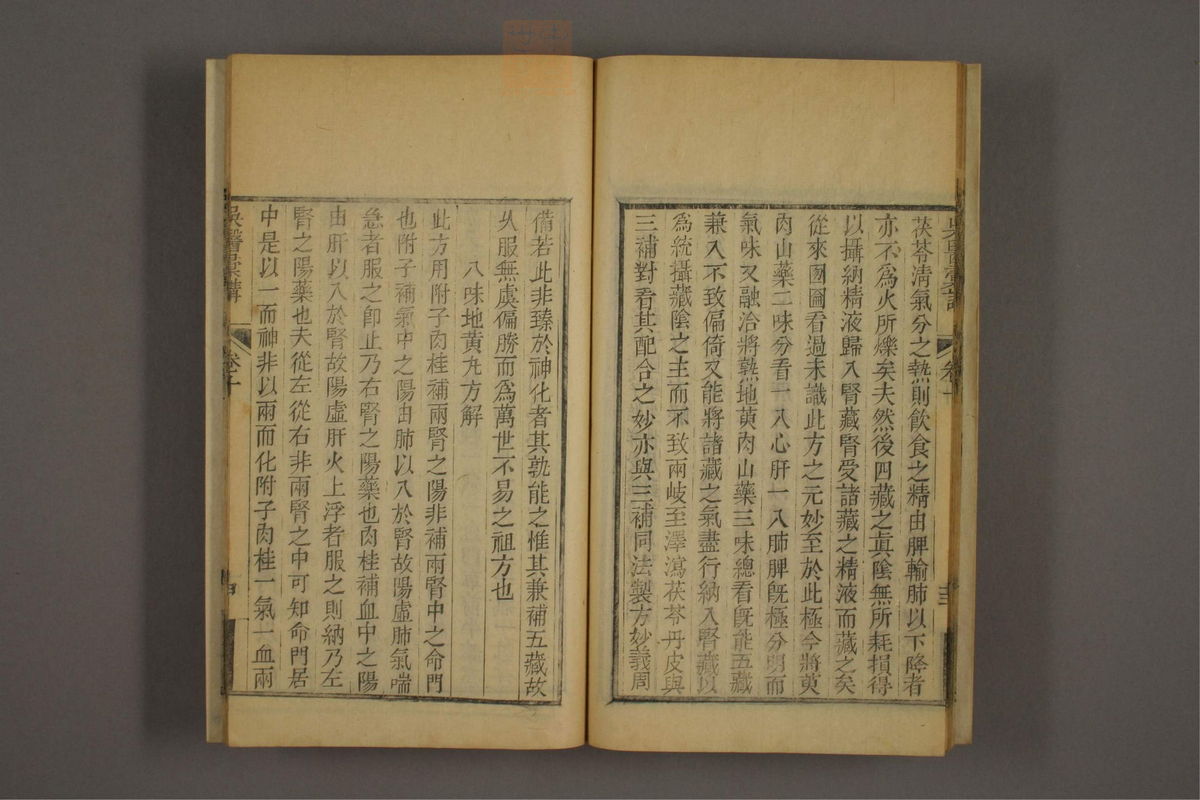 茯苓清氣分之熱則飲食之精由脾輸肺以下降者
亦不爲火所爍矣夫然後四藏之眞陰無所耗損得
以攝納精液歸入腎藏腎受諸藏之精液而藏之矣
從來囫圇看過未識此方之元妙至於此極今將萸
肉山藥二味分看一入心肝一入肺脾旣極分明而
氣味又融洽將熟地萸肉山藥三味總看旣能五藏
兼入不致偏倚又能將諸藏之氣盡行納入腎藏以
爲統攝藏陰之主而不致兩岐至澤瀉茯苓丹皮與
三補對看其配合之妙亦與三補同法製方妙義周
備若此非臻於神化者其孰能之惟其兼補五藏故
久服無虞偏勝而爲萬世不易之祖方也
八味地黃丸方解
此方用附子肉桂補兩腎之陽非補兩腎中之命門
也附子補氣中之陽由肺以入於腎故陽虛肺氣喘
急者服之卽止乃右腎之陽藥也肉桂補血中之陽
由肝以入於腎故陽虛肝火上浮者服之則納乃左
腎之陽藥也夫從左從右非兩腎之中可知命門居
中是以一而神非以兩而化附子肉桂一氣一血兩
吳醫彙講
卷十